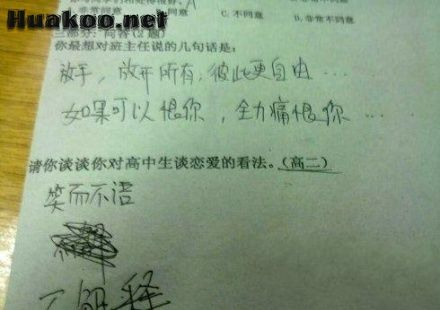 Huakoo.net
非常同意 C. 不同意 D. 非常不同意
三部分:问答(2题)
你最想对班主任说的几句话是:
放手,放开所有,彼此更自由...
如果可以恨你,全力痛恨你...
请你谈谈你对高中生谈恋爱的看法。(高二)
笑而不语
不解释
Huakoo.net